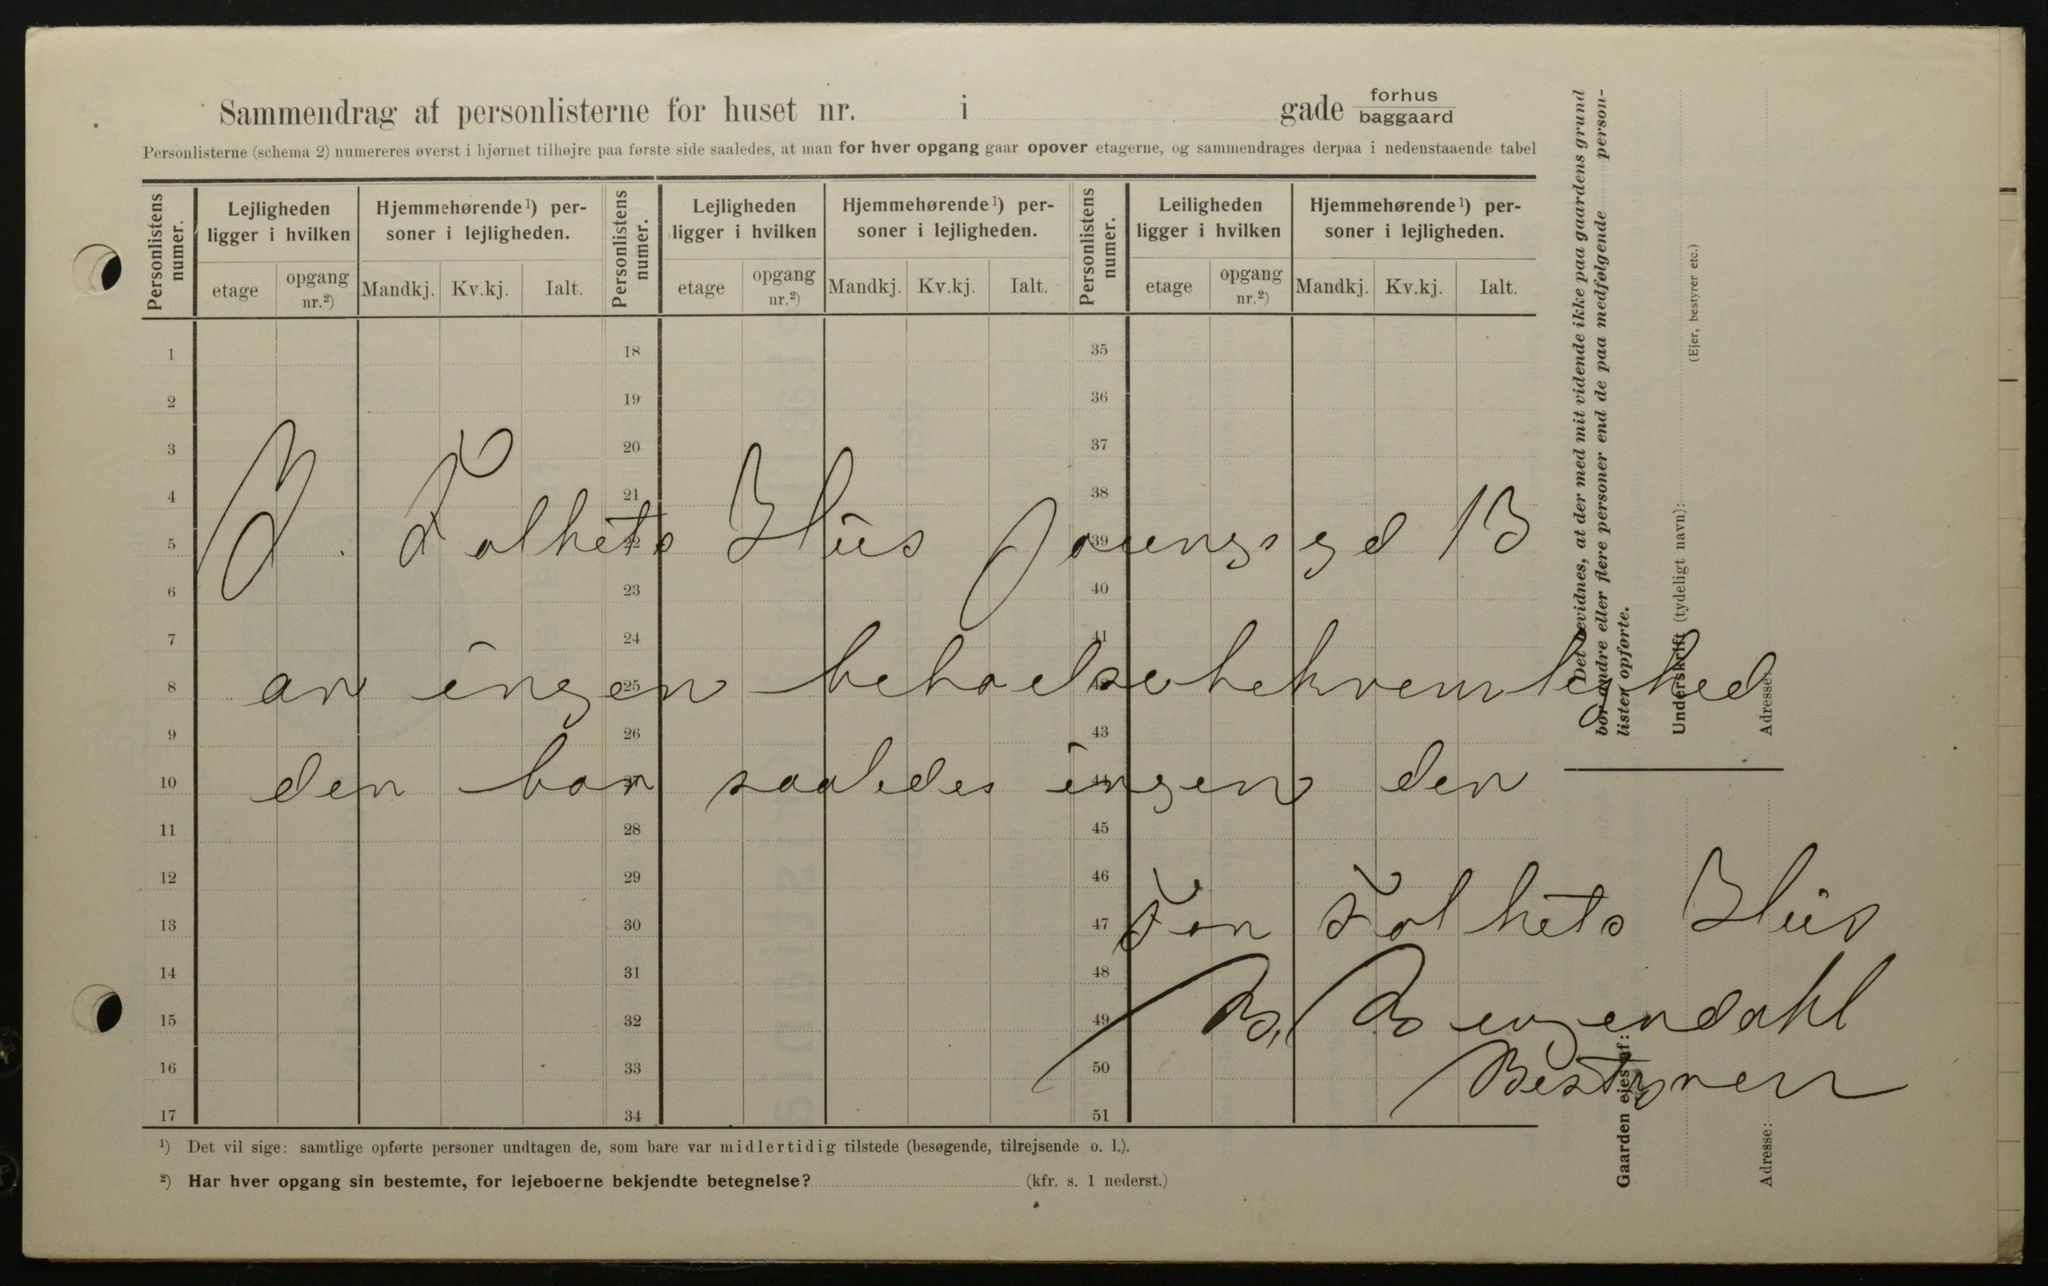 Sammendrag af personlisterne for huset nr. i gade forhus baggaard
Personlisterne (schema 2) numereres øverst i hjørnet tilhøjre paa første side saaledes, at man for hver opgang gaar opover etagerne, og sammendrages derpaa i nedenstaaende tabel
Personlistens numer. Lejligheden ligger i hvilken Hjemmehørende¹) personer i lejligheden. Personlistens numer. Lejligheden ligger i hvilken Hjemmehørende¹) personer i lejligheden. Personlistens numer. Leiligheden ligger i hvilken Hjemmehørende¹) personer i lejligheden.
etage opgang nr.²) Mandkj. Kv.kj. Ialt. etage opgang nr.²) Mandkj. Kv.kj. Ialt. etage opgang nr.²) Mandkj. Kv.kj. Ialt.
1 18 35
2 19 36
3 20 37
4 21 38
5 22 39
6 23 40
7 24 41
8 25 42
9 26 43
10 27 44
11 28 45
12 29 46
13 30 47
14 31 48
15 32 49
16 33 50
17 34 51
I. Folkets Hus Youngsgd 13
er ingen beboelsebekvemlighed
der bor saaledes ingen der
For Folkets Hus
B. Bergendahl
Bestyrer
¹) Det vil sige: samtlige opførte personer undtagen de, som bare var midlertidig tilstede (besøgende, tilrejsende o. l.).
²) Har hver opgang sin bestemte, for lejeboerne bekjendte betegnelse? (kfr. s. 1 nederst.)
Det bevidnes, at der med mit vidende ikke paa gaardens grund
bor andre eller flere personer end de paa medfølgende personlister opførte.
Underskrift (tydeligt navn):
(Ejer, bestyrer etc.)
Adresse:
Gaarden ejes af:
Adresse: